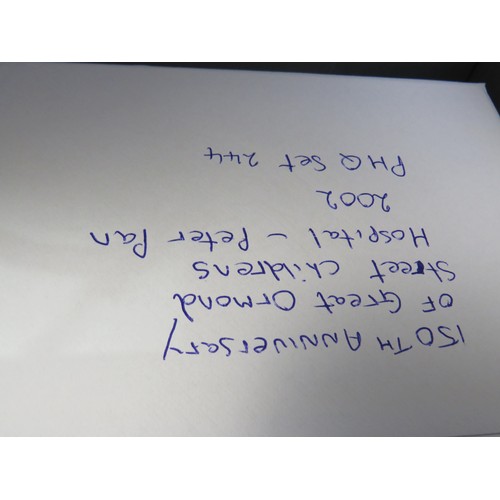 150TH ANNIVERSARY
OF Great Ormond
Street childrens
Hospital - Peter Pan
2002
PHQ Set 244